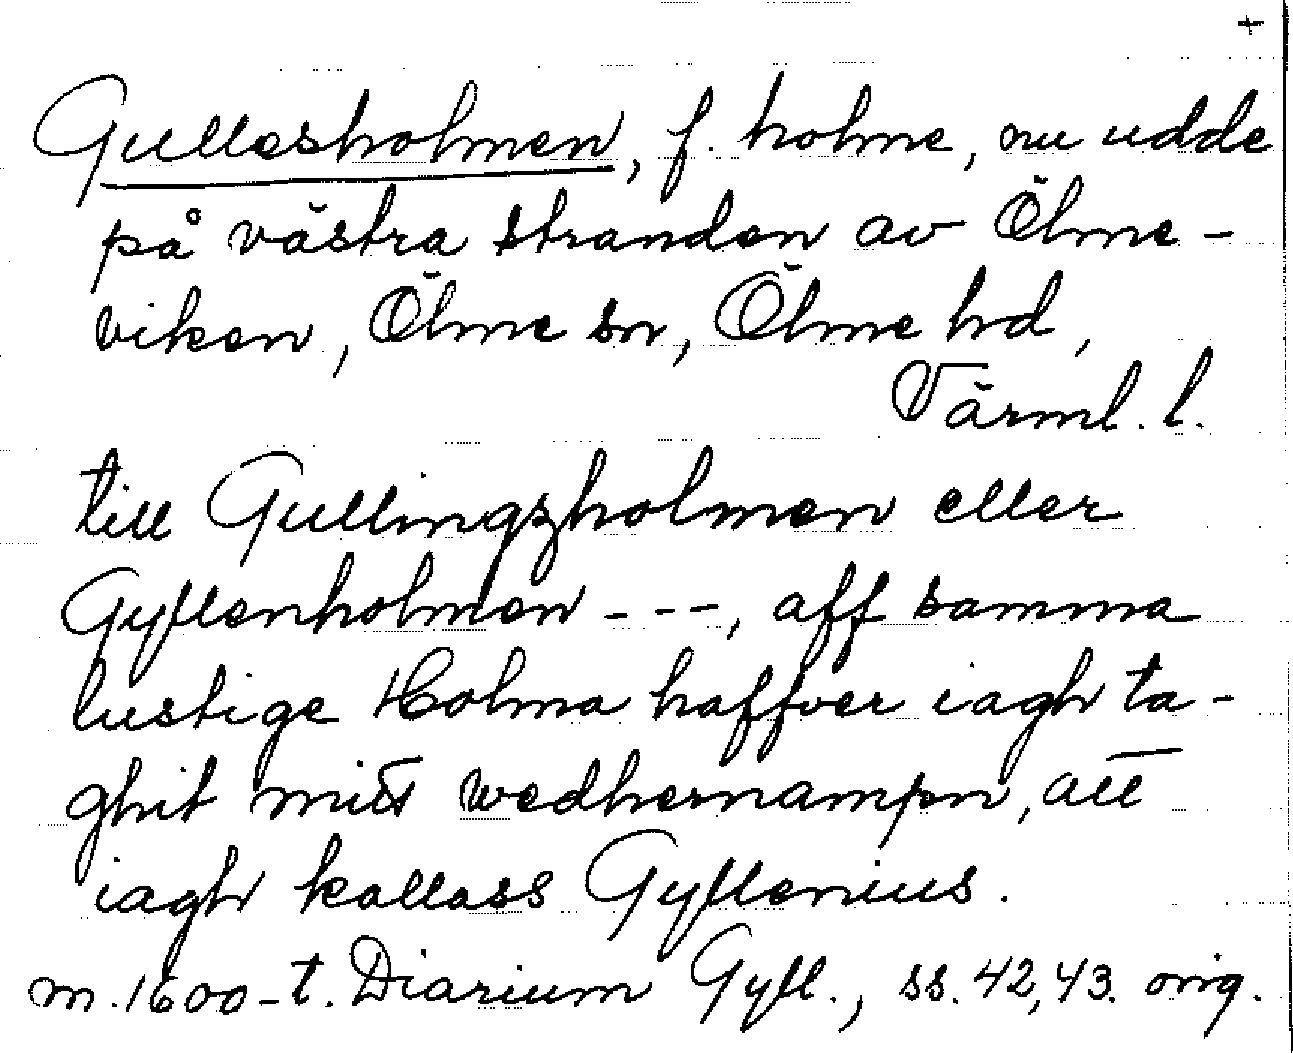 +
Gullesholmen, f. holme, nu udde
på västra stranden av Ölme-
viken, Ölme sn, Ölme hd,
Värml. l.
till Gullingzholmen eller
Gyllenholmen ---, aff samma
lustige Holma haffver iagh ta-
ghit mitt wedhernampn, att
iagh kallass Gyllenius.
m. 1600-t. Diarium Gyll., ss. 42, 43. orig.